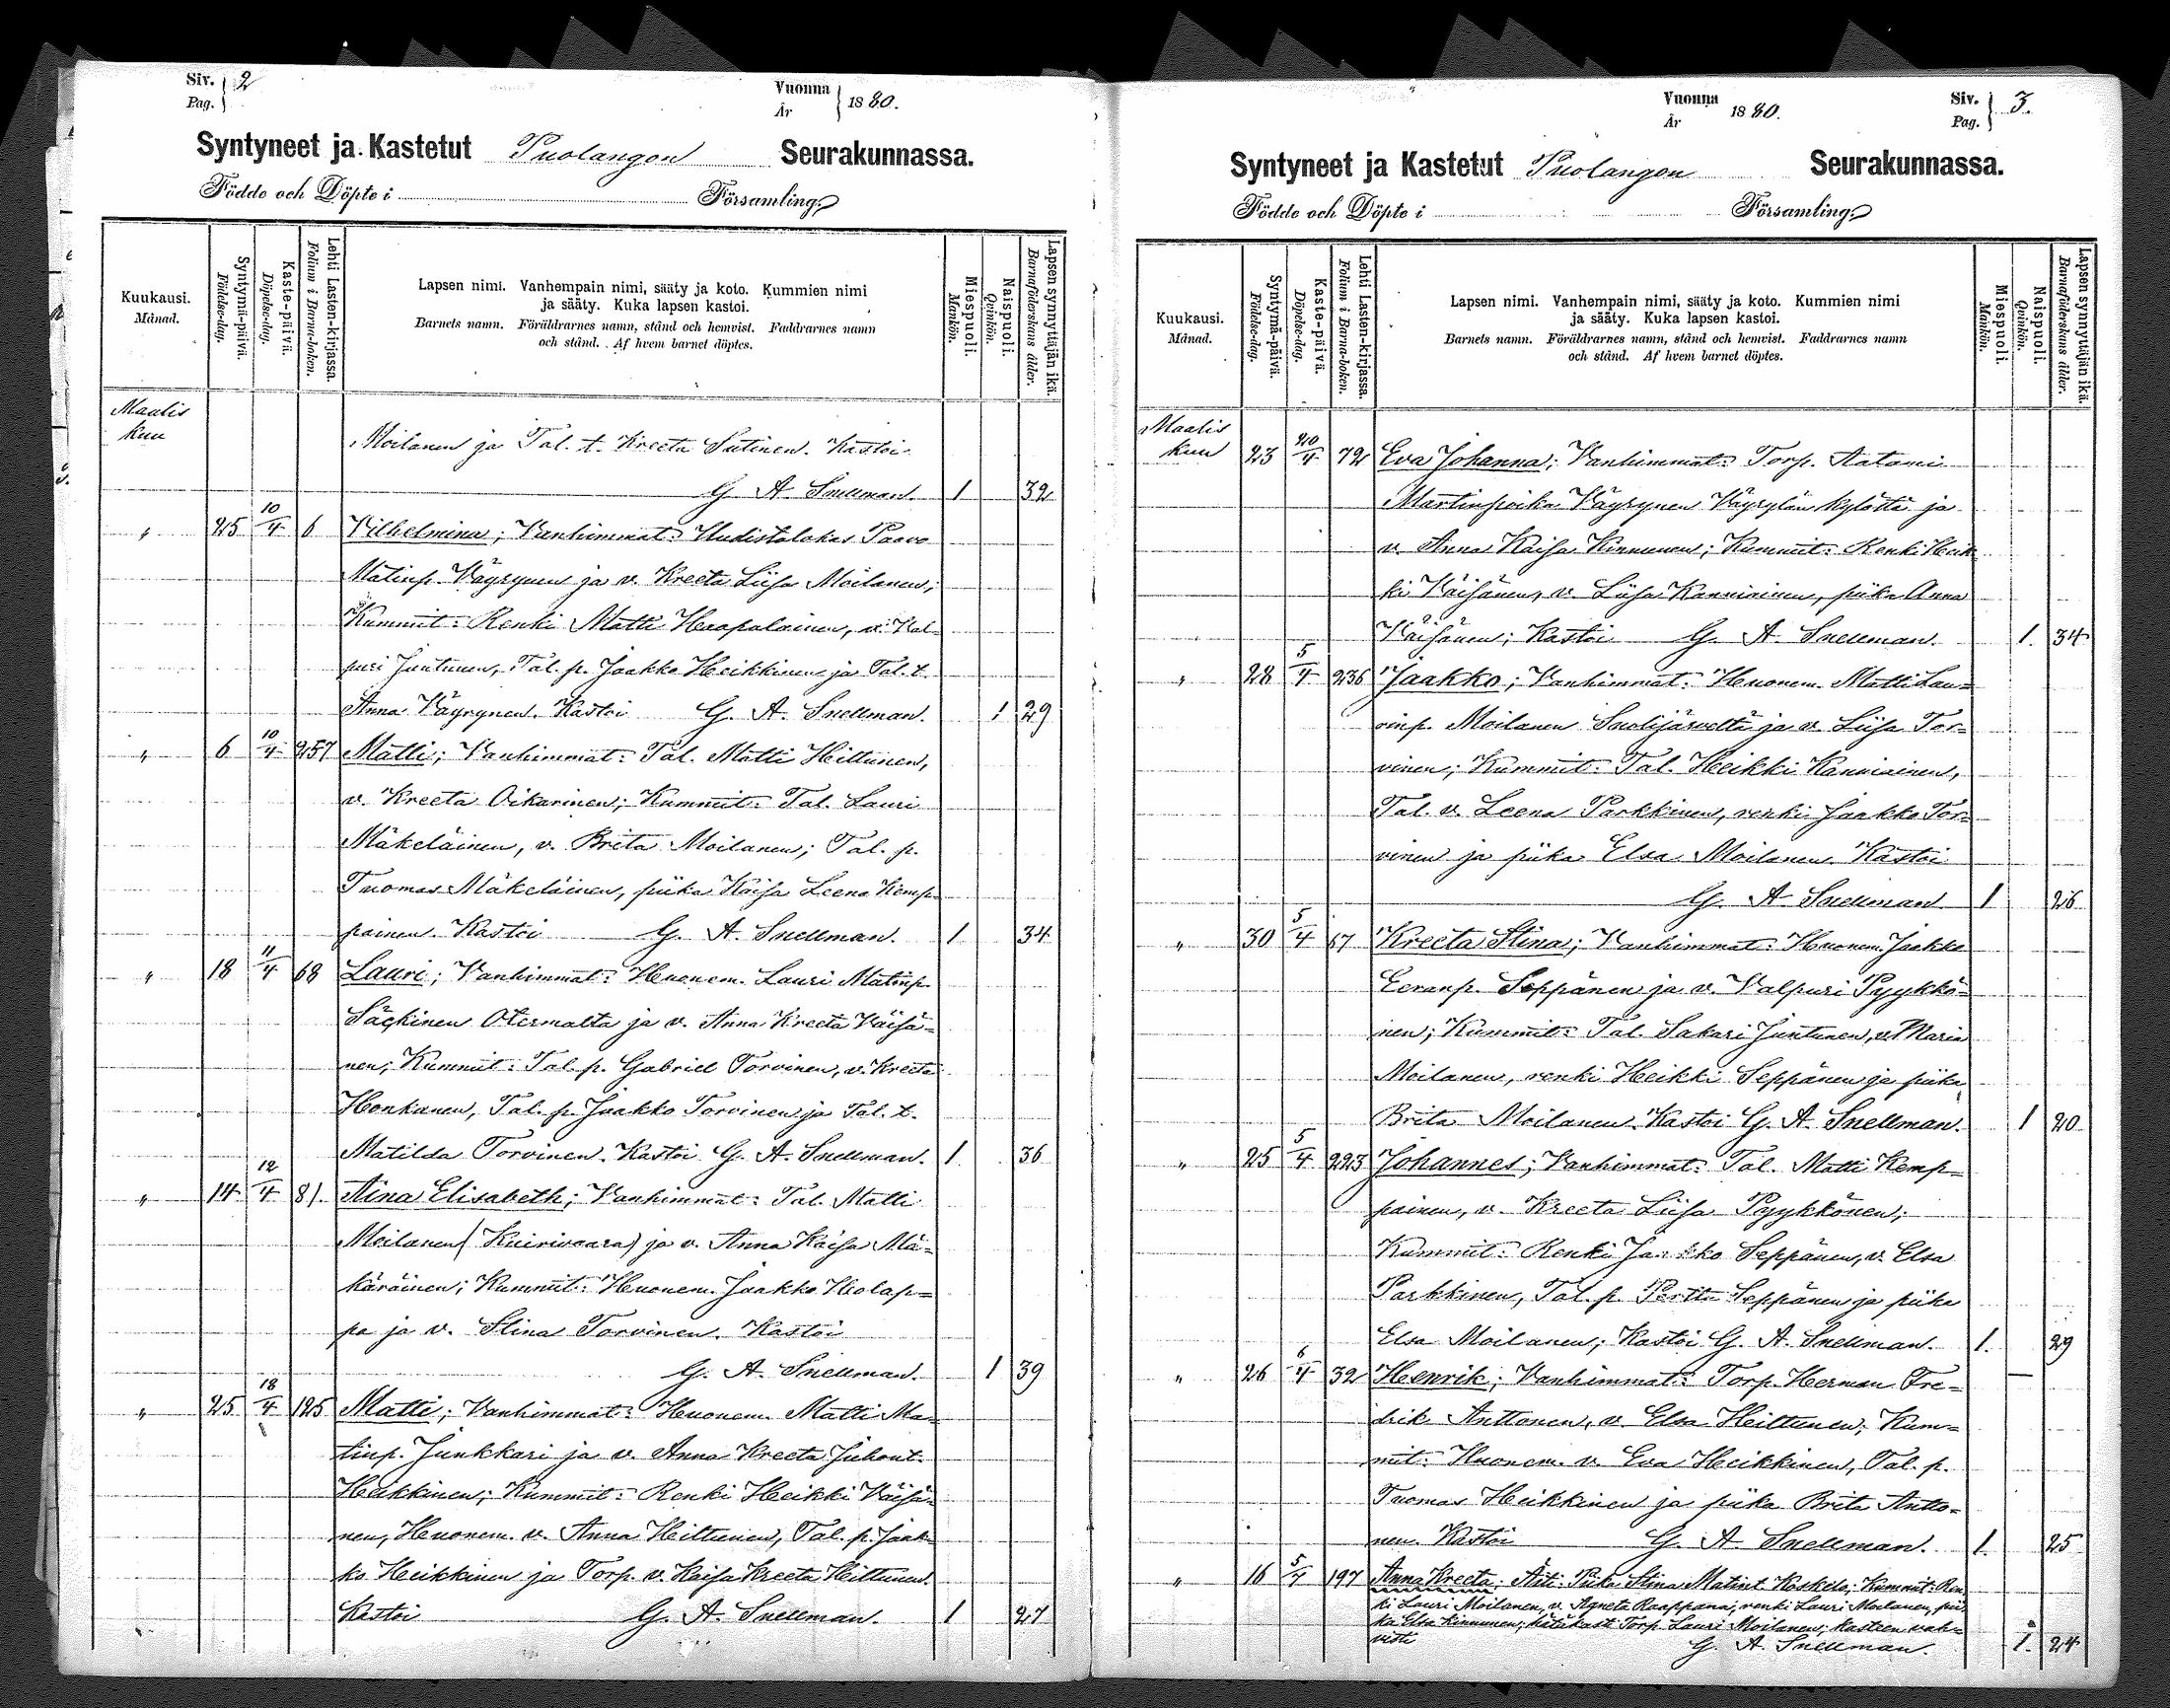 Siv. 2
Pag.
Vuonna 1880.
År
Syntyneet ja Kastetut Puolangon Seurakunnassa.
Födde och Döpte i Församling
Kuukausi.
Månad.
Syntymä-päivä.
Födelse-dag.
Kaste-päivä.
Döpelse-dag.
Lehti Lasten-kirjassa.
Folium i Barna-boken.
Lapsen nimi. Vanhempain nimi, sääty ja koto. Kummien nimi
ja sääty. Kuka lapsen kastoi.
Barnets namn. Föräldrarnes namn, stånd och hemvist. Faddrarnes namn
och stånd. Af hvem barnet döptes.
Miespuoli.
Mankön.
Naispuoli.
Qvinkön.
Lapsen synnyttäjän ikä.
Barnaföderskans ålder.
Maalis
kuu
Moilanen ja Tal. t. Kreeta Sutinen. Kastoi
G. A. Snellman. 1 32
" 25 10/4 6 Vilhelmina; Vanhimmat: Uudistalokas Paavo
Matinp. Väyrynen ja v. Kreeta Liisa Moilanen;
Kummit: Renki Matti Haapalainen, v. Val-
puri Juntunen, Tal. p. Jaakko Heikkinen ja Tal. t.
Anna Väyrynen. Kastoi G. A. Snellman. 1 29
" 6 10/4 257 Matti; Vanhimmat: Tal. Matti Hiltunen,
v. Kreeta Oikarinen; Kummit: Tal. Lauri
Mäkeläinen, v. Brita Moilanen; Tal. p.
Tuomas Mäkeläinen, piika Kaisa Leena Kemp-
painen. Kastoi G. A. Snellman. 1 34
" 18 11/4 68 Lauri; Vanhimmat: Huonem. Lauri Matinp.
Säckinen Otermalta ja v. Anna Kreeta Väisä-
nen; Kummit: Tal. p. Gabriel Torvinen, v. Kreeta
Honkanen, Tal. p. Jaakko Torvinen ja Tal. t.
Matilda Torvinen. Kastoi G. A. Snellman. 1 36
" 14 12/4 81. Aina Elisabeth; Vanhimmat: Tal. Matti
Moilanen (Kuirivaara) ja v. Anna Kaisa Mä-
käräinen; Kummit: Huonem. Jaakko Holap-
pa ja v. Stina Torvinen. Kastoi
G. A. Snellman. 1 39
" 25 18/4 125 Matti; Vanhimmat: Huonem. Matti Ma-
tinp. Junkkari ja v. Anna Kreeta Juhont.
Heikkinen; Kummit: Renki Heikki Väisä-
nen, Huonem. v. Anna Hiltunen, Tal. p. Jaak-
ko Heikkinen ja Torp. v. Kaisa Kreeta Hiltunen.
Kastoi G. A. Snellman. 1 27
Vuonna 1880.
År
Siv. 3.
Pag.
Syntyneet ja Kastetut Puolangon Seurakunnassa.
Födde och Döpte i Församling
Kuukausi.
Månad.
Syntymä-päivä.
Födelse-dag.
Kaste-päivä.
Döpelse-dag.
Lehti Lasten-kirjassa.
Folium i Barna-boken.
Lapsen nimi. Vanhempain nimi, sääty ja koto. Kummien nimi
ja sääty. Kuka lapsen kastoi.
Barnets namn. Föräldrarnes namn, stånd och hemvist. Faddrarnes namn
och stånd. Af hvem barnet döptes.
Miespuoli.
Mankön.
Naispuoli.
Qvinkön.
Lapsen synnyttäjän ikä.
Barnaföderskans ålder.
Maalis
kuu 23 /4 72 Eva Johanna; Vanhimmat: Torp. Aatami
Martinpoika Väyrynen Väyrylän kylältä ja
v. Anna Kaisa Kinnunen; Kummit: Renki Heik-
ki Väisänen, v. Liisa Kanniainen, piika Anna
Väisänen; Kastoi G. A. Snellman. 1. 34
" 28 5/4 236 Jaakko; Vanhimmat: Huonem. Matti Lau-
rinp. Moilanen Suolijärveltä ja v. Liisa Tor-
vinen; Kummit: Tal. Heikki Kanniainen,
Tal. v. Leena Parkkinen, renki Jaakko Tor-
vinen ja piika Elsa Moilanen. Kastoi
G. A. Snellman 1 26
" 30 5/4 67 Kreeta Stina; Vanhimmat: Huonem. Jaakko
Eeranp. Seppänen ja v. Valpuri Pyykkö-
nen; Kummit: Tal. Sakari Juntunen, v. Maria
Moilanen, renki Heikki Seppänen ja piika
Brita Moilanen. Kastoi G. A. Snellman. 1 20
" 25 5/4 223 Johannes; Vanhimmat: Tal. Matti Kemp-
painen, v. Kreeta Liisa Pyykkönen;
Kummit: Renki Jaakko Seppänen, v. Elsa
Parkkinen, Tal. p. Perttu Seppänen ja piika
Elsa Moilanen; Kastoi G. A. Snellman. 1. 29
" 26 6/4 32 Henrik; Vanhimmat: Torp. Herman Fre-
drik Anttonen, v. Elsa Heiltunen; Kum-
mit: Huonem. v. Eva Heikkinen, Tal. p.
Tuomas Heikkinen ja piika Brita Antto-
nen. Kastoi G. A. Snellman. 1. 25
" 16 5/4 197 Anna Kreeta; Äiti: Piika Stina Matint. Koskelo; Kummit: Ren-
ki Lauri Moilanen, v. Agneta Raappana, renki Lauri Moilanen, pii-
ka Elsa Kinnunen; Hätäkasti Torp. Lauri Moilanen; kasteen vah-
visti G. A. Snellman. 1. 24